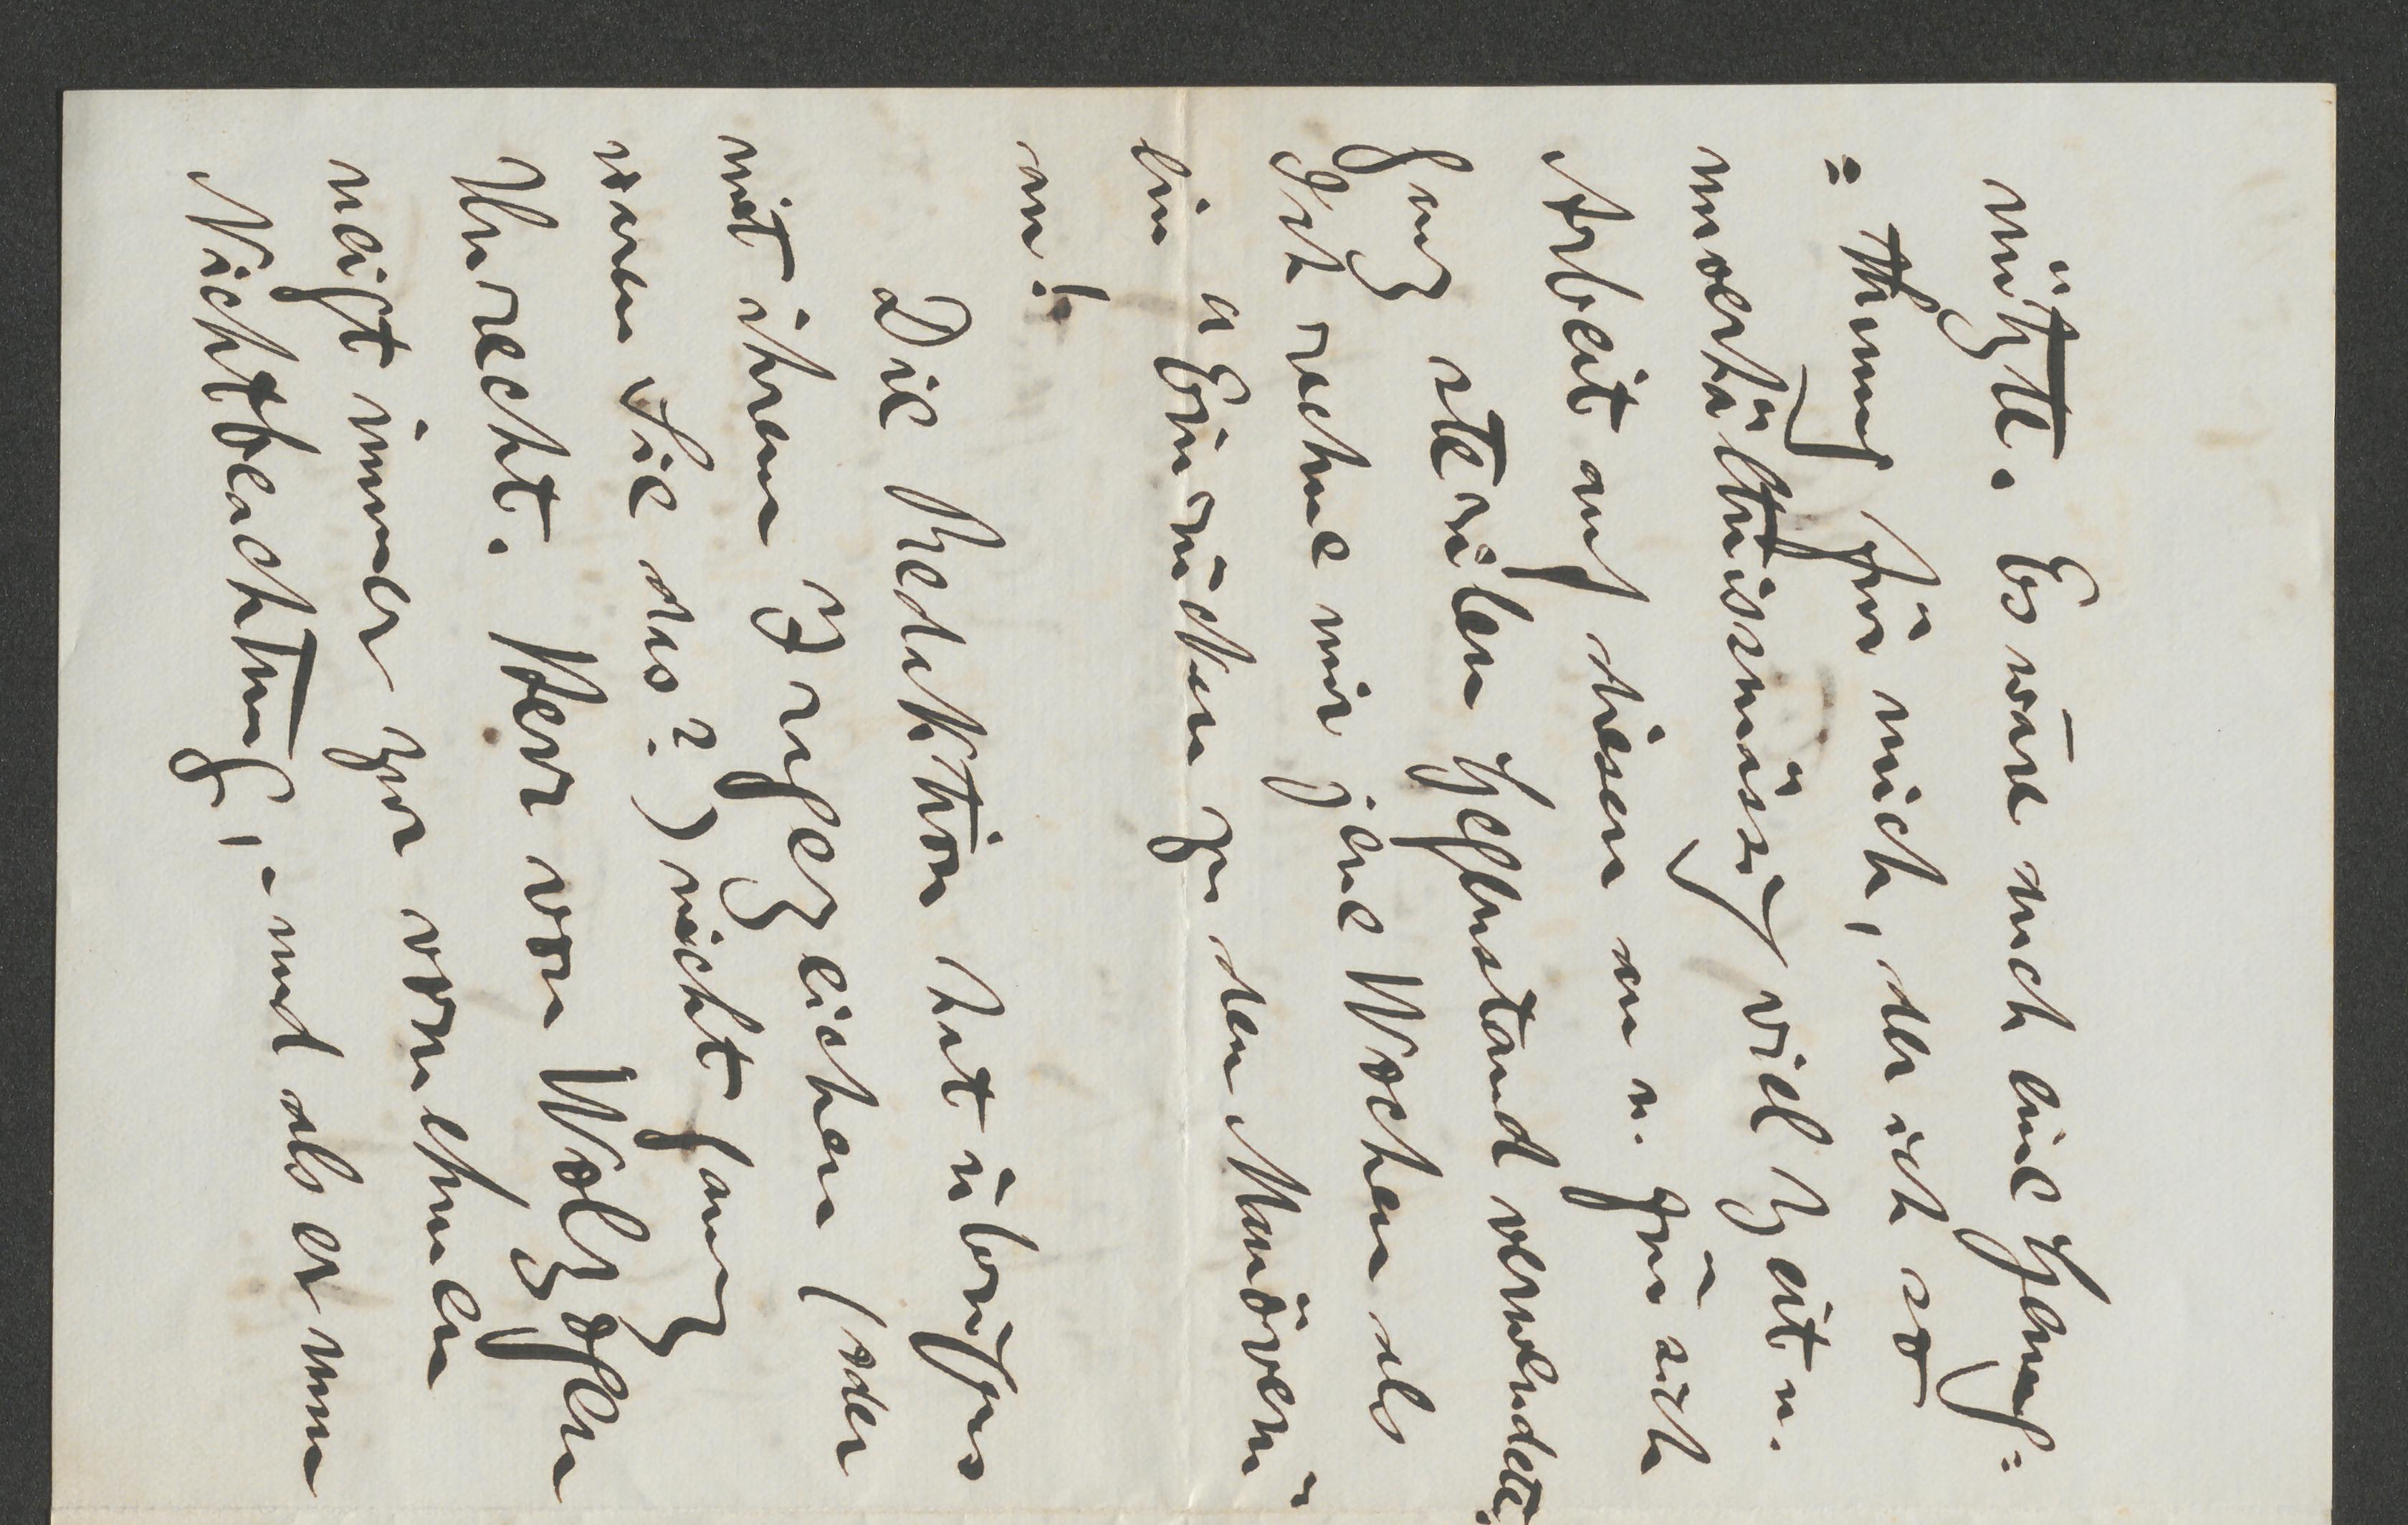 nützte. Es wäre auch eine Genug=
=thuung für mich, der ich so
unverhältnissmässig viel Zeit u.
Arbeit auf diesen an u. für sich
ganz sterilen Gegenstand verwendete.
Ich rechne mir jene Wochen als
ein
zu den Manövern
an!
Die Redaktion hat übrigens
mit ihrem Fragezeichen (oder
waren Sie das?) nicht ganz
Unrecht. Herr von Wolzogen
neigt immer zur vornehmen
Nichtbeachtung, - und als er nun